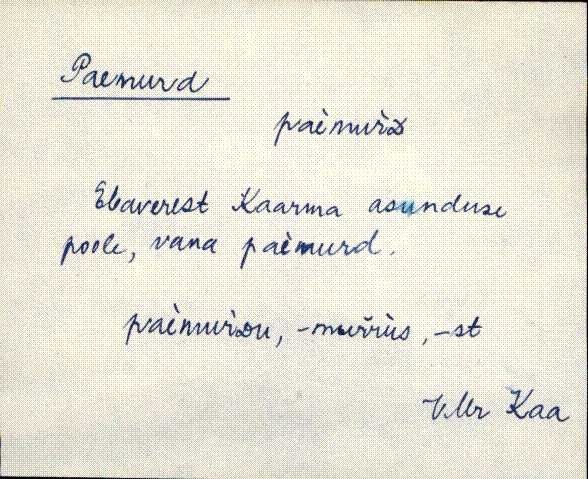 Paemurd
pàemuřᴅ
Ebaverest Kaarma asunduse
poole, vana pàemurd.
pàemuřᴅu, -muřrùs, -st
V.Mr Kaa